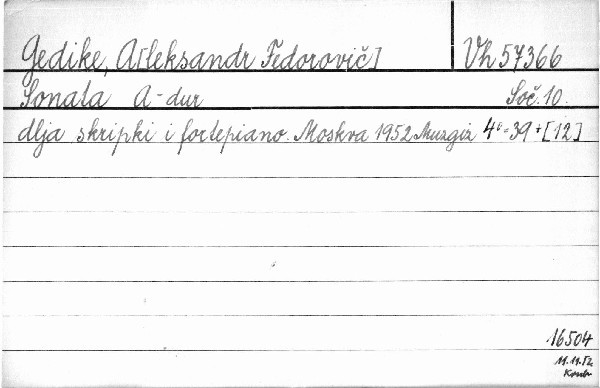 Gedike, A[leksandr Fedorovič] Vh 57366
Sonata A-dur Soč. 10.
dlja skripki i fortepiano. Moskva 1952 Muzgiz 4°=39+[12]
16504
11.11.52